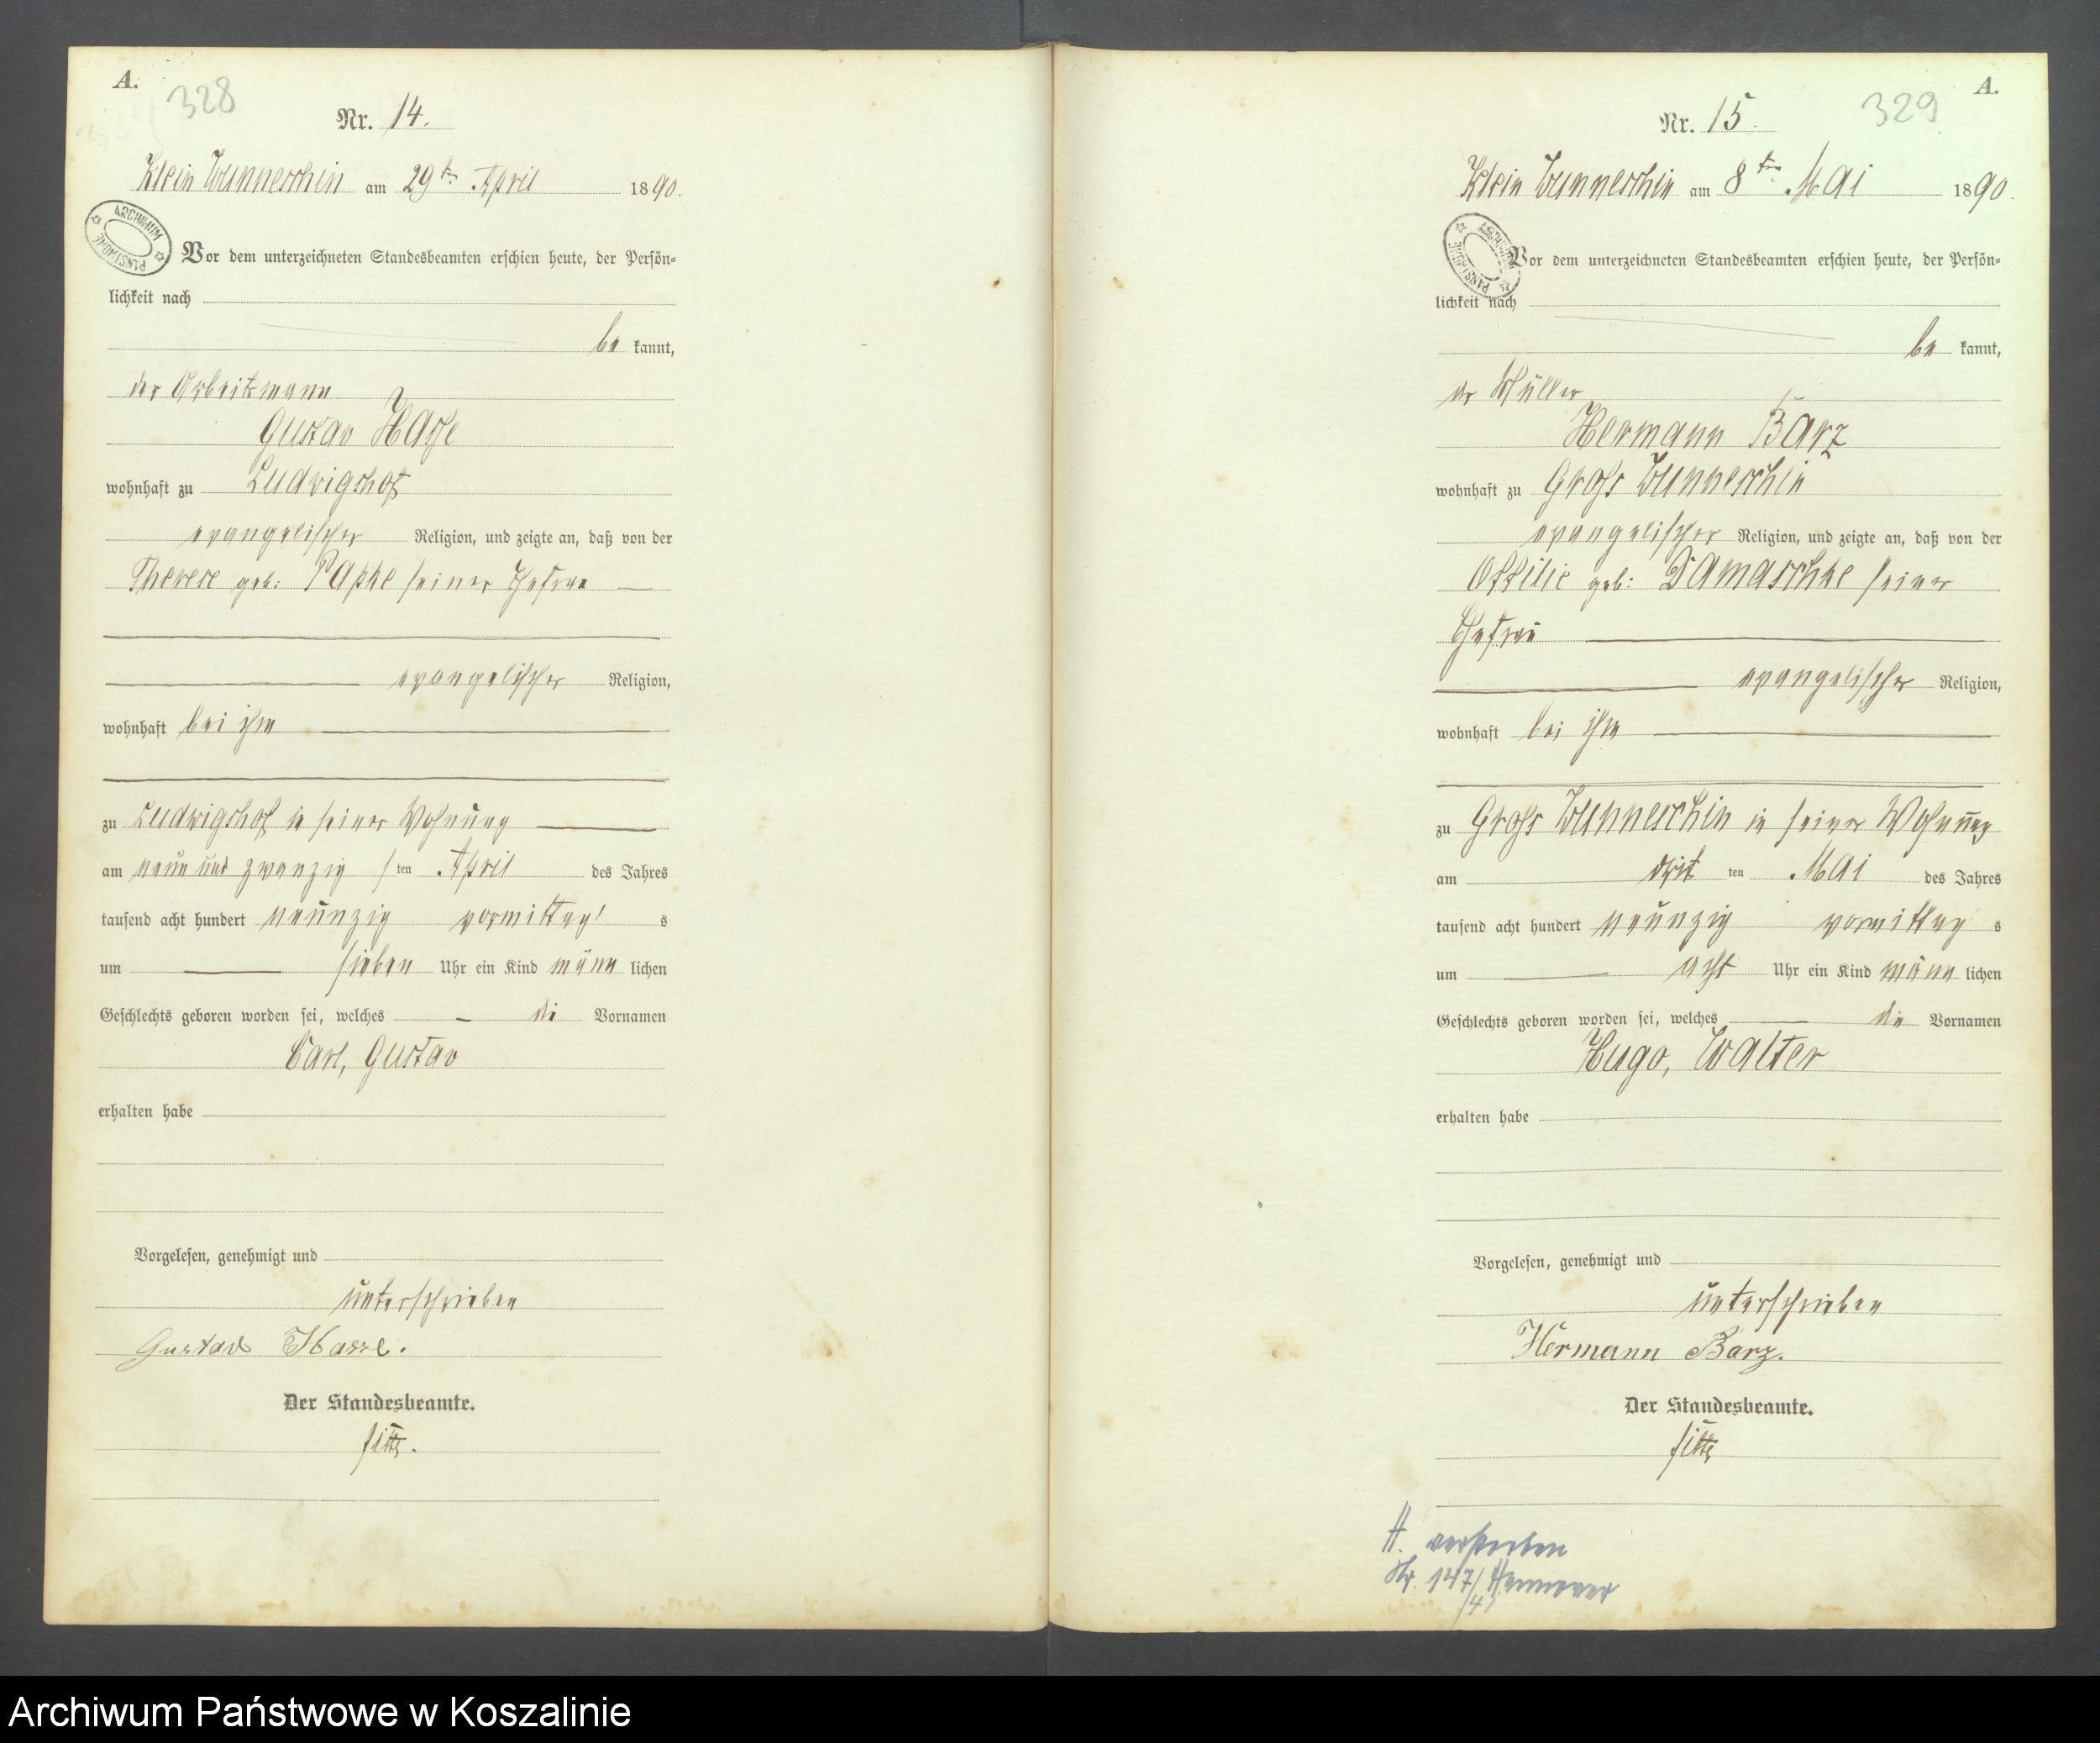 A.
328
Nr. 14.
Klein Wunneschin am 29ten April 1890.
ARCHIWUM PAŃSTWOWE
Vor dem unterzeichneten Standesbeamten erschien heute, der Persön-
lichkeit nach
be kannt,
der Arbeitsmann
Gustav Hasse
wohnhaft zu Ludwigshof
evangelischer Religion, und zeigte an, daß von der
Therese geb: Papke seiner Ehefrau
evangelischer Religion,
wohnhaft bei ihm
zu Ludwigshof in seiner Wohnung
am neun und zwanzigsten April des Jahres
tausend acht hundert neunzig vormittags
um sieben Uhr ein Kind männlichen
Geschlechts geboren worden sei, welches die Vornamen
Carl, Gustav
erhalten habe
Vorgelesen, genehmigt und
unterschrieben
Gustav Hasse.
Der Standesbeamte.
A.
329
Nr. 15.
Klein Wunneschin am 8ten Mai 1890.
ARCHIWUM PAŃSTWOWE
Vor dem unterzeichneten Standesbeamten erschien heute, der Persön-
lichkeit nach
be kannt,
der Müller
Hermann Barz
wohnhaft zu Gross Wunneschin
evangelischer Religion, und zeigte an, daß von der
Ottilie geb: Damaschke seiner
Ehefrau
evangelischer Religion,
wohnhaft bei ihm
zu Gross Wunneschin in seiner Wohnung
am dritten Mai des Jahres
tausend acht hundert neunzig vormittags
um acht Uhr ein Kind männlichen
Geschlechts geboren worden sei, welches die Vornamen
Hugo, Walter
erhalten habe
Vorgelesen, genehmigt und
unterschrieben
Hermann Barz.
Der Standesbeamte.
H. verstorben
Nr. 147/41 Hannover
Archiwum Państwowe w Koszalinie